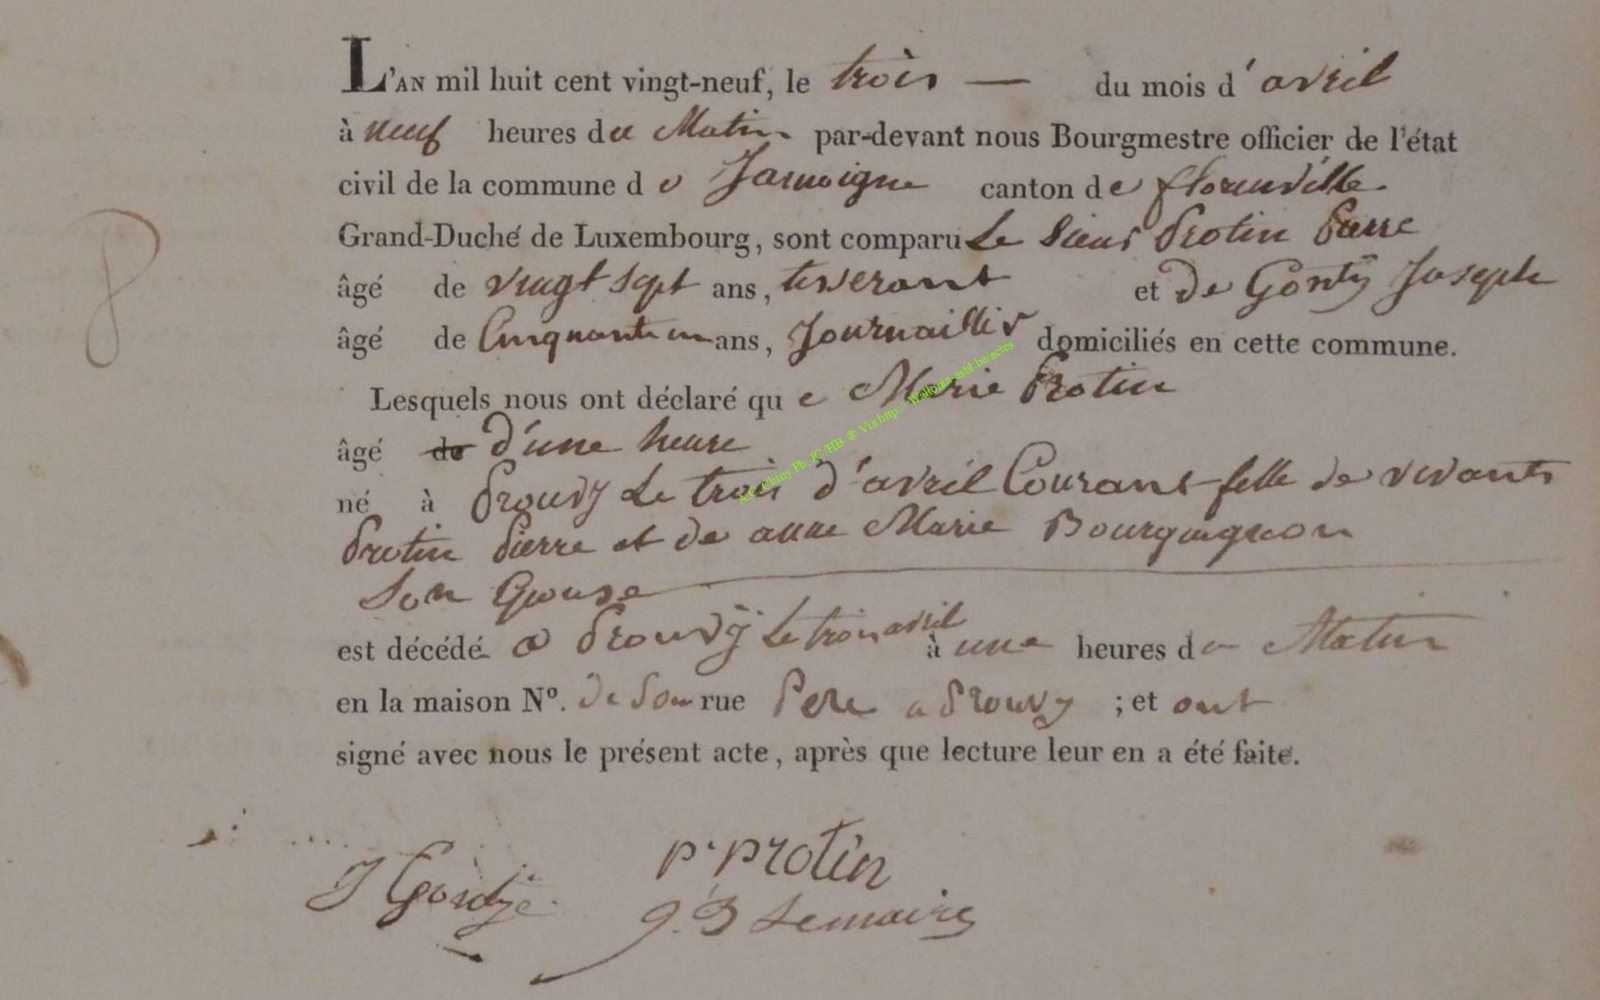 8
L'AN mil huit cent vingt-neuf, le trois — du mois d'avril
à neuf heures du Matin par-devant nous Bourgmestre officier de l'état
civil de la commune de Jamoigne canton de florenville
Grand-Duché de Luxembourg, sont comparu Le Sieur Protin Pierre
âgé de vingt sept ans, tisserant et de Gonty Joseph
âgé de Cinquante un ans, Journaillier domiciliés en cette commune.
Lesquels nous ont déclaré que Marie Protin
âgé de d'une heure
né à Prouvy Le trois d'avril Courant fille de vivants
Protin Pierre et de anne Marie Bourguignon
Son Epouse
est décédé a Prouvÿ Le trois avril à une heures du Matin
en la maison N°. de Son rue Pere a Prouvy ; et ont
signé avec nous le présent acte, après que lecture leur en a été faite.
P. Protin
J
Lemaire
Cluny Ph. JC/HB ® Via http:// Wallonia-asbl.be/actes